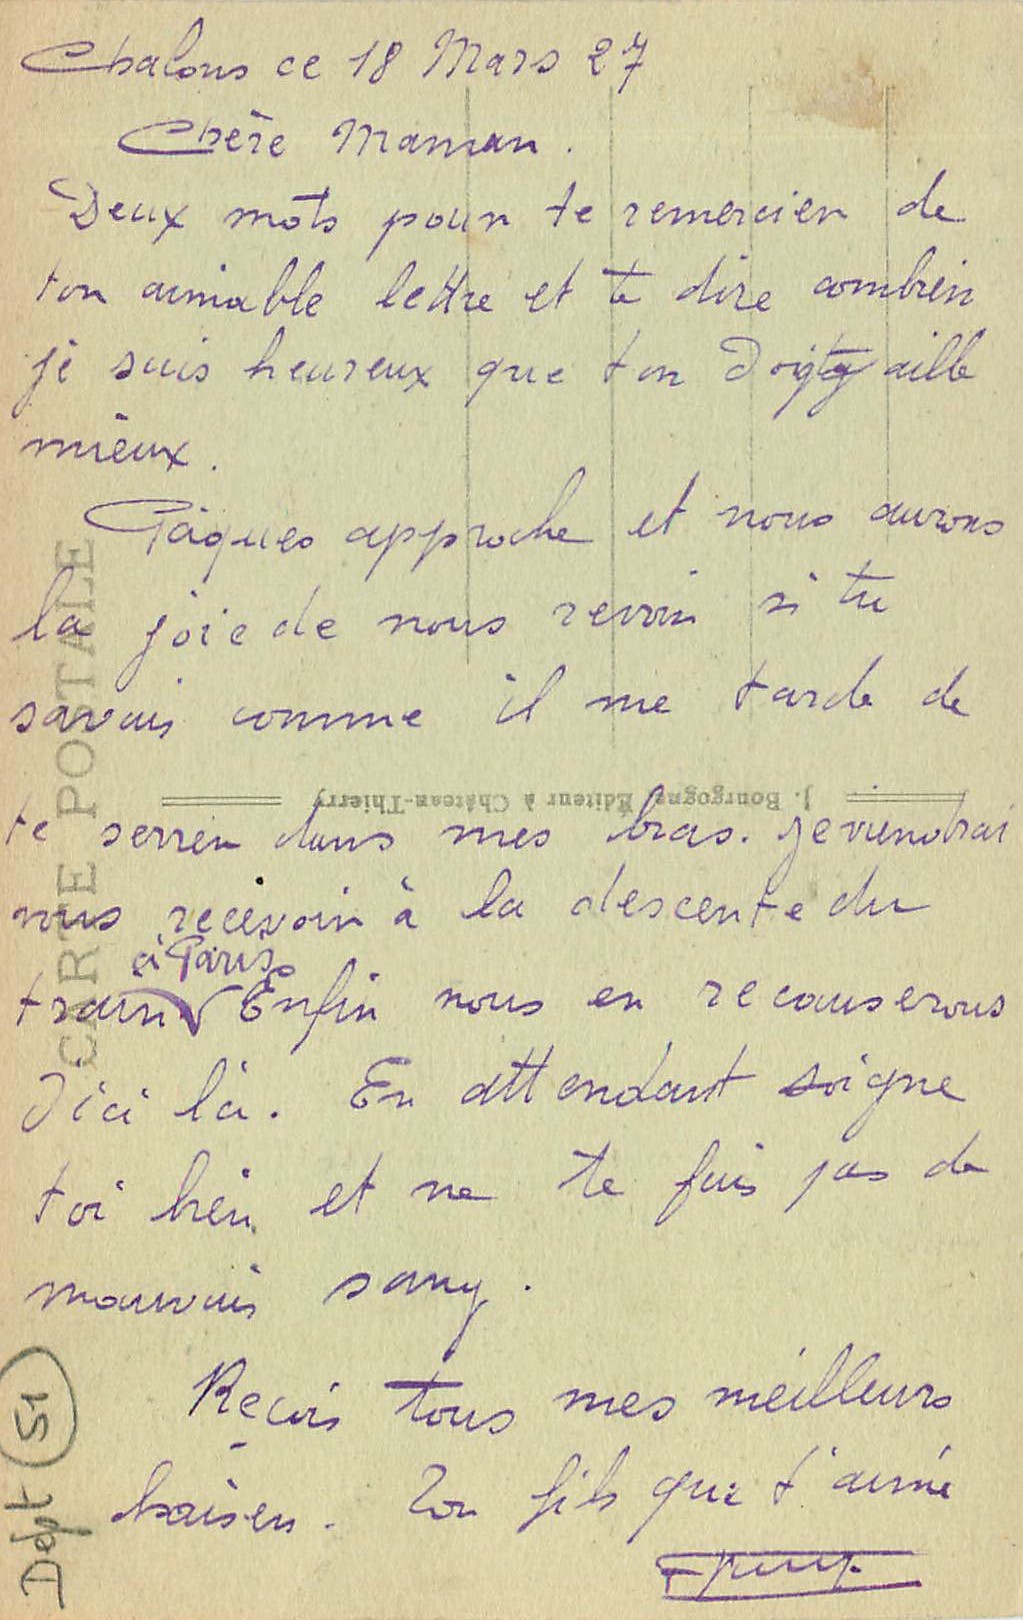 Chalons ce 18 Mars 27
Chère Maman.
Deux mots pour te remercier de
ton aimable lettre et te dire combien
je suis heureux que ton Doigt aille
mieux.
Pâques approche et nous aurons
la joie de nous revoir si tu
savais comme il me tarde de
J. Bourgogne, Éditeur à Château-Thierry
te serrer dans mes bras. je viendrai
vous recevoir à la descente du
à Paris
train. Enfin nous en recauserons
D'ici là. En attendant soigne
toi bien et ne te fais pas de
mauvais sang.
Reçois tous mes meilleurs
baisers. Ton fils que t'aime
CARTE POSTALE
Dépt 51